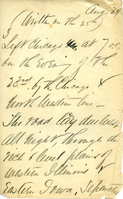 Aug 24
(Written on the 25th)
I
Left Chicago at 7 20
on the Evening of the
23rd by the Chicago &
North Western line —
This road lay due west,
All night, through the
rich level plains of
western Illinois &
Eastern Iowa,